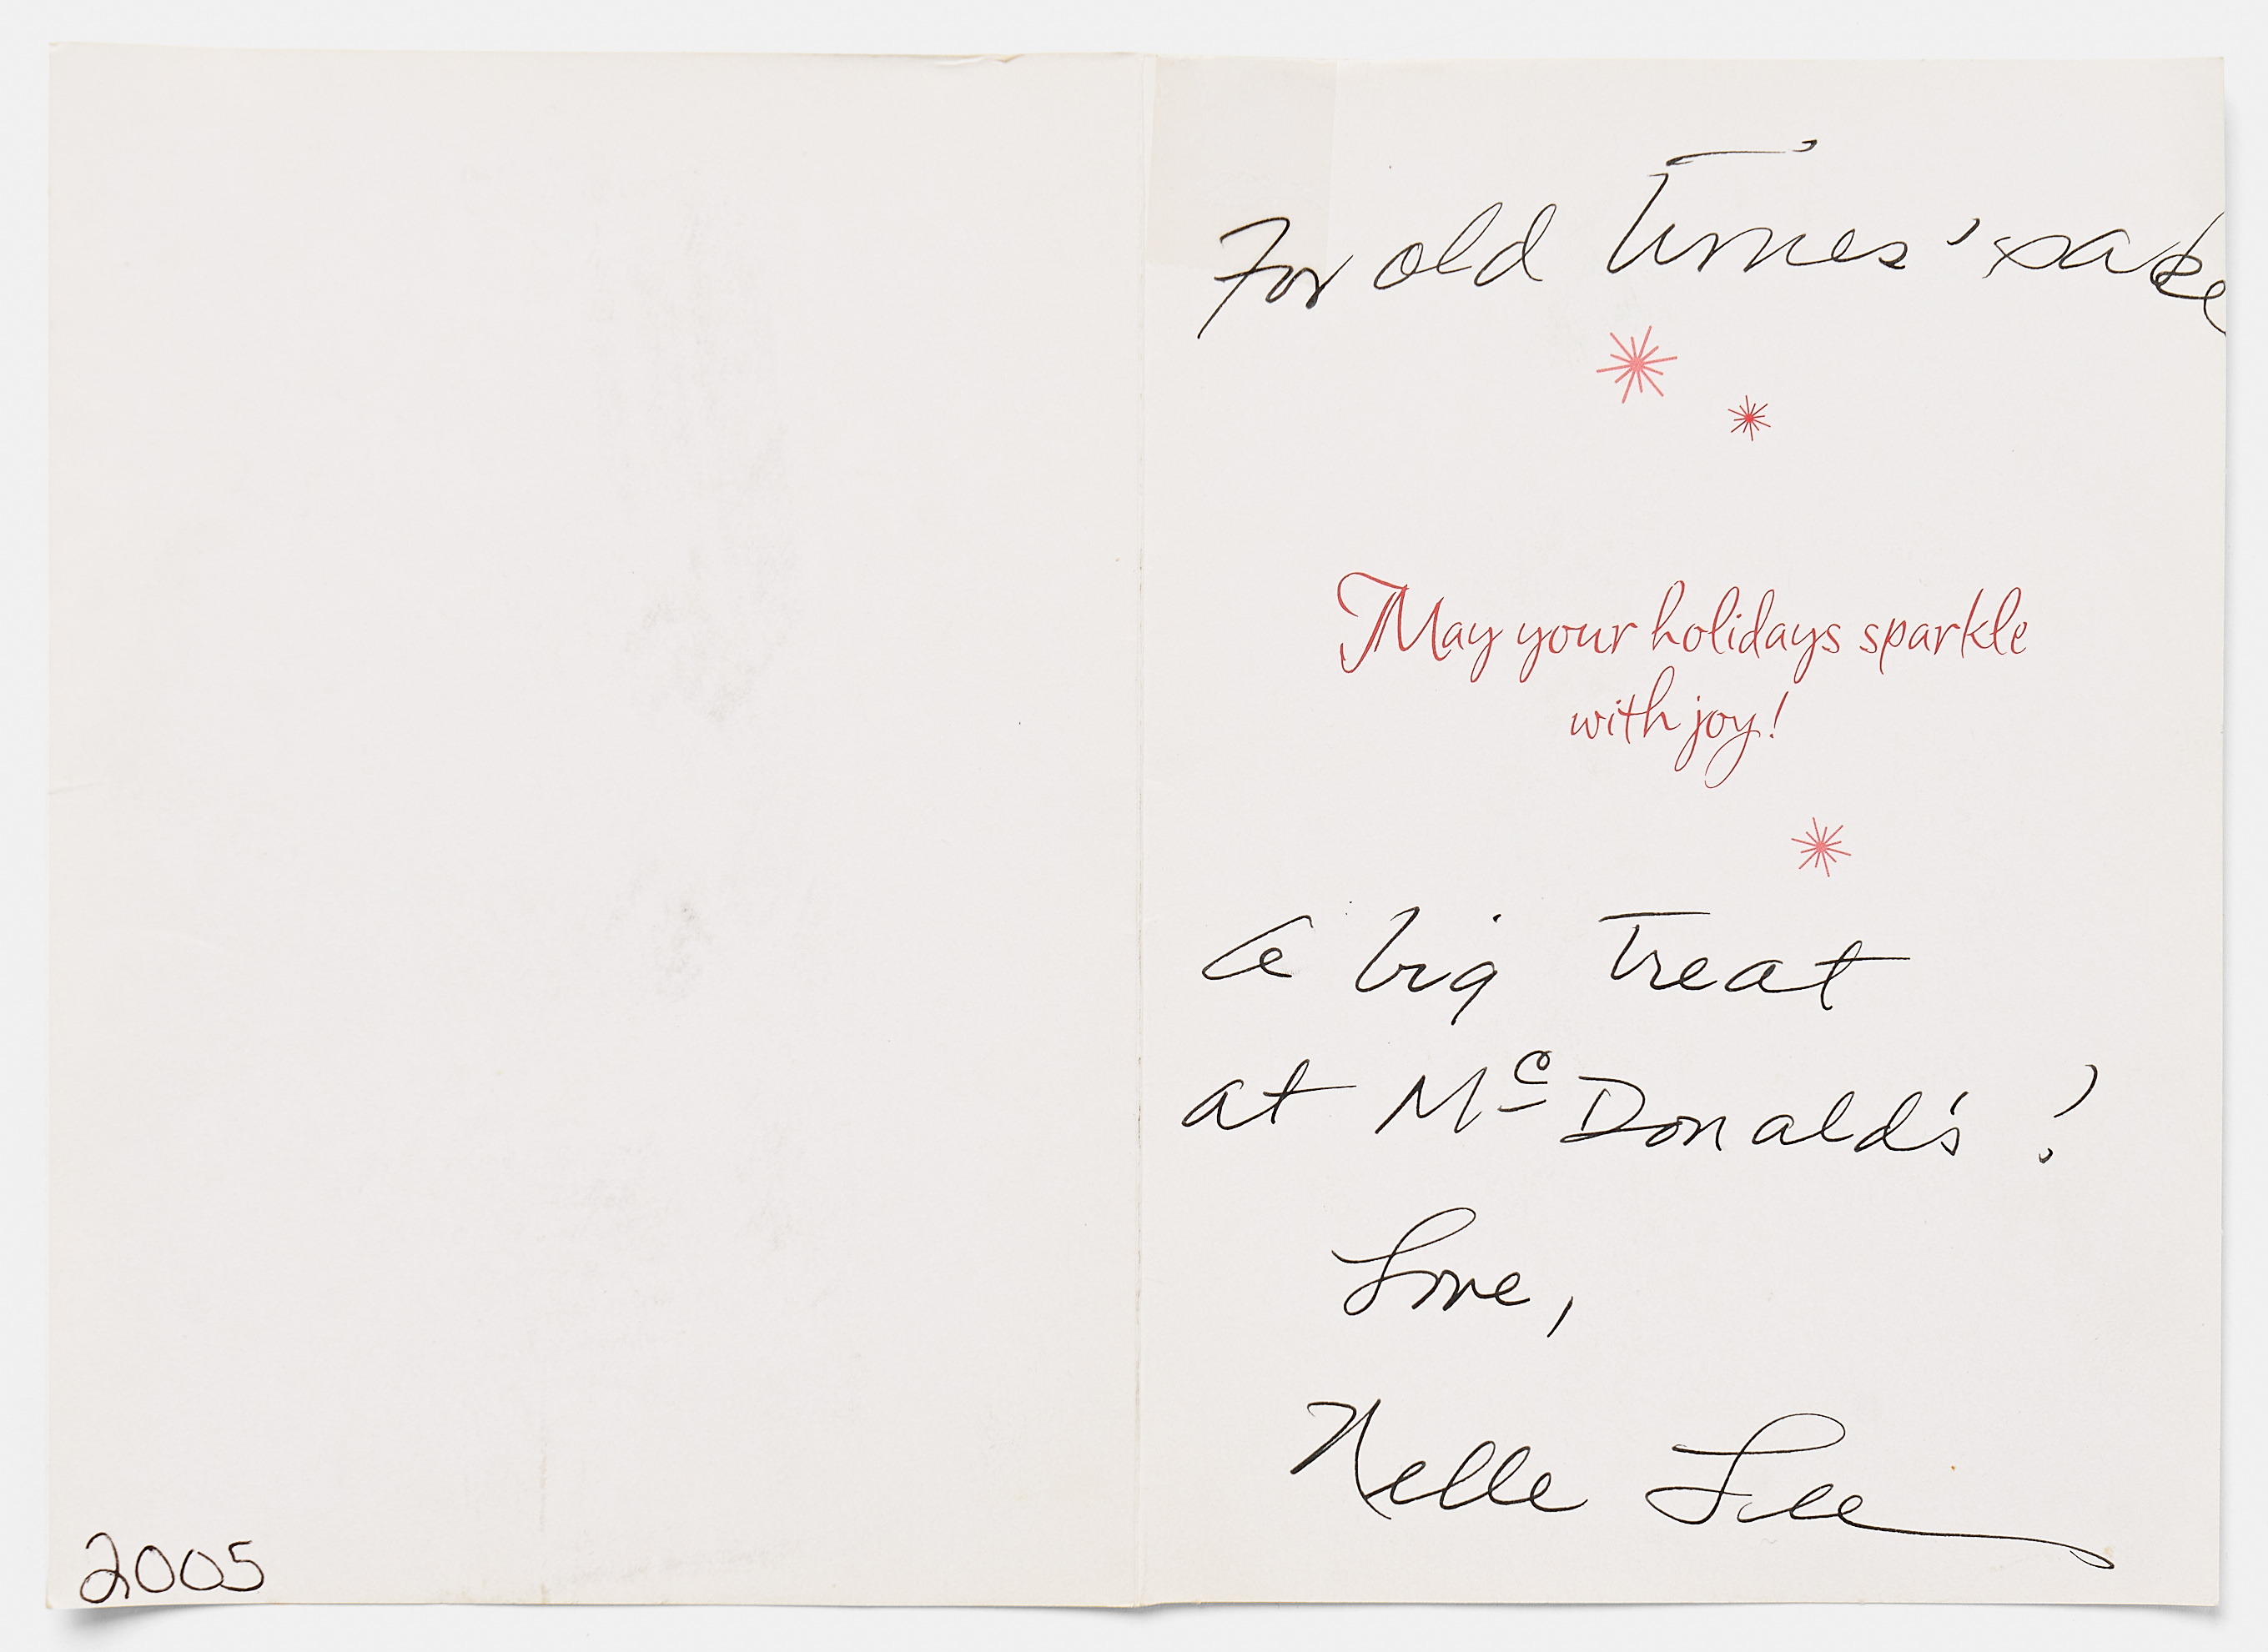 2005
For old Times' sake
May your holidays sparkle
with joy!
a big Treat
at McDonald's!
Love,
Nelle Lee